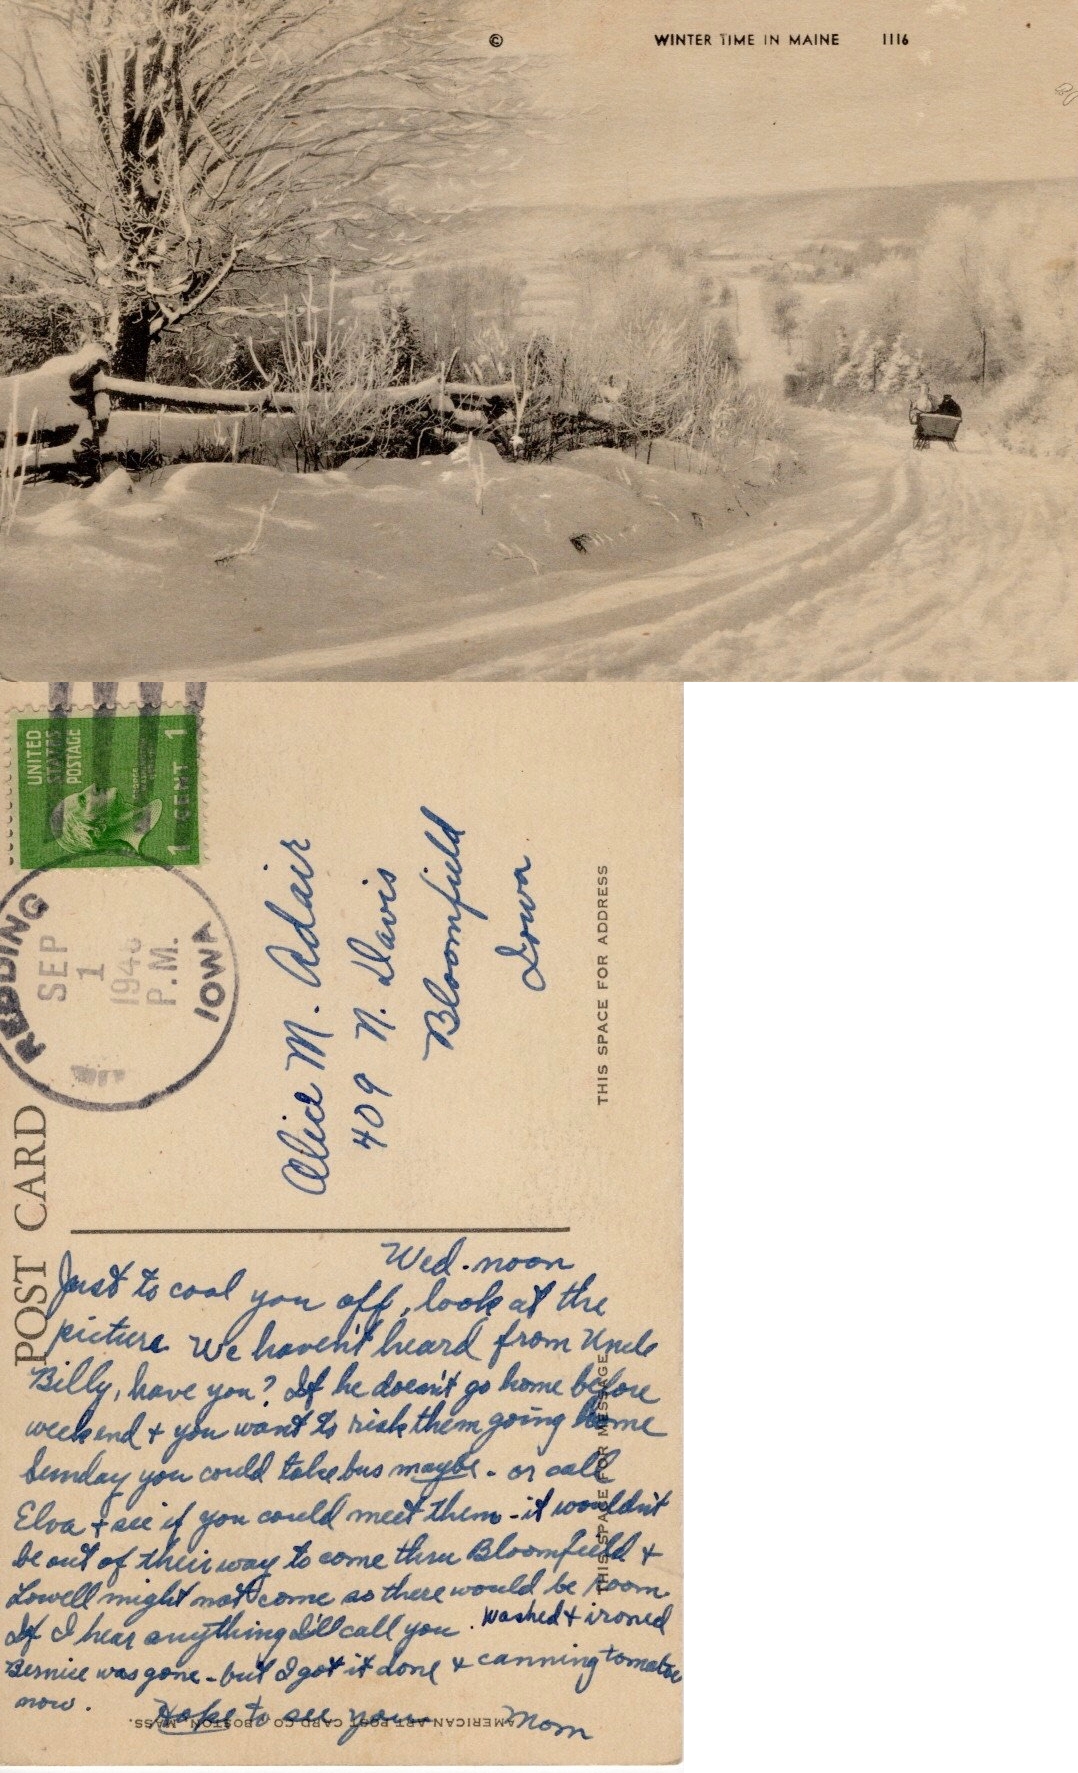 © WINTER TIME IN MAINE 1116
UNITED
STATES
POSTAGE
1 CENT 1
REDDING
SEP
1
P.M.
IOWA
POST CARD
Alice M. Adair
409 N. Davis
Bloomfield
Iowa
THIS SPACE FOR ADDRESS
Wed. noon
Just to cool you off, look at the
picture. We haven't heard from Uncle
Billy, have you? If he doesn't go home before
weekend + you want to risk them going home
Sunday you could take bus maybe - or call
Elva + see if you could meet them - it wouldn't
be out of their way to come thru Bloomfield +
Lowell might not come so there would be room.
If I hear anything I'll call you. Washed + ironed
Bernice was gone - but I got it done + canning tomatoe
now. Hope to see you Mom
THIS SPACE FOR MESSAGE
AMERICAN ART POST CARD CO. BOSTON, MASS.